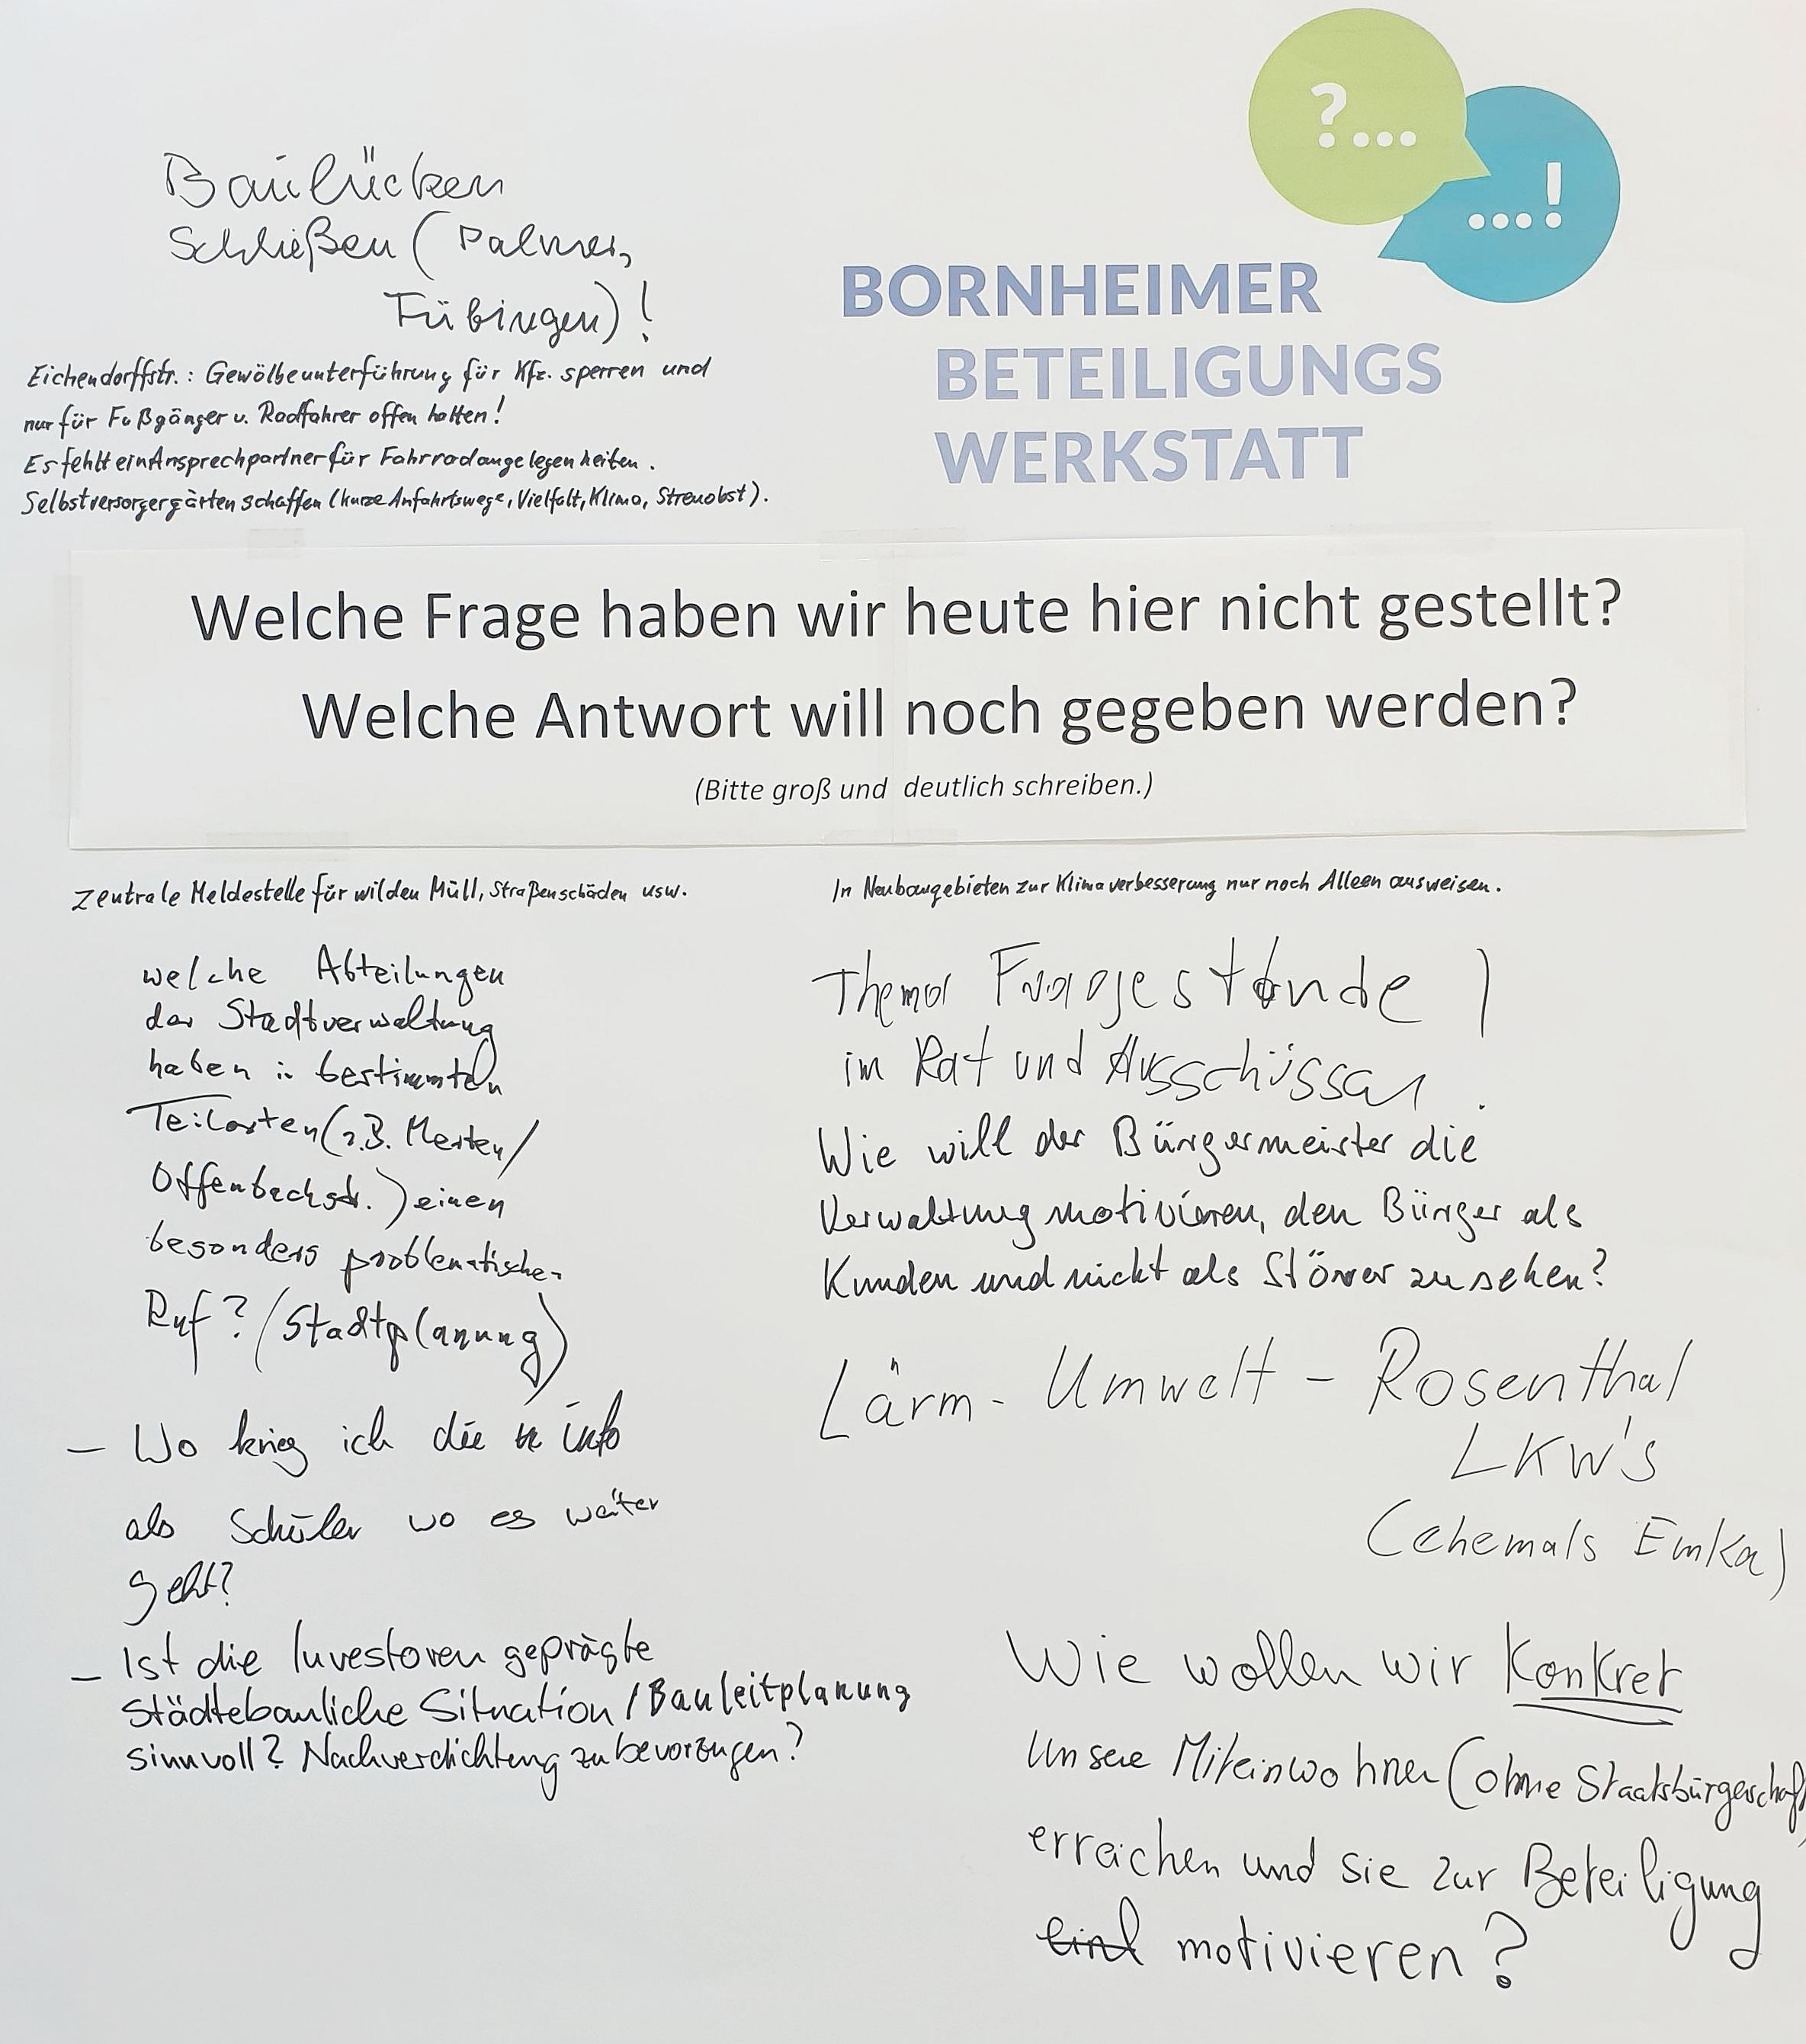 ?...
...!
Baulücken
Schließen (Palmer,
Tübingen)!
BORNHEIMER
BETEILIGUNGS
WERKSTATT
Eichendorffstr.: Gewölbeunterführung für Kfz. sperren und
nur für Fußgänger u. Radfahrer offen halten!
Es fehlt ein Ansprechpartner für Fahrradangelegenheiten.
Selbstversorgergärten schaffen (kurze Anfahrtswege, Vielfalt, Klima, Streuobst).
Welche Frage haben wir heute hier nicht gestellt?
Welche Antwort will noch gegeben werden?
(Bitte groß und deutlich schreiben.)
Zentrale Meldestelle für wilden Müll, Straßenschäden usw.
welche Abteilungen
der Stadtverwaltung
haben in bestimmten
Teilorten (z.B. Merten/
Offenbachstr.) einen
besonders problematischen
Ruf? (Stadtplanung)
– Wo krieg ich die info
als Schüler wo es weiter
geht?
– Ist die Investoren geprägte
Städtebauliche Situation / Bauleitplanung
sinnvoll? Nachverdichtung zu bevorzugen?
In Neubaugebieten zur Klimaverbesserung nur noch Alleen ausweisen.
Thema Fragestunde
im Rat und Ausschüssen!
Wie will der Bürgermeister die
Verwaltung motivieren, den Bürger als
Kunden und nicht als Störer zu sehen?
Lärm - Umwelt - Rosenthal
LKW's
(ehemals Emka)
Wie wollen wir Konkret
unsere Miteinwohner (ohne Staatsbürgerschaft)
erreichen und sie zur Beteiligung
einl motivieren?